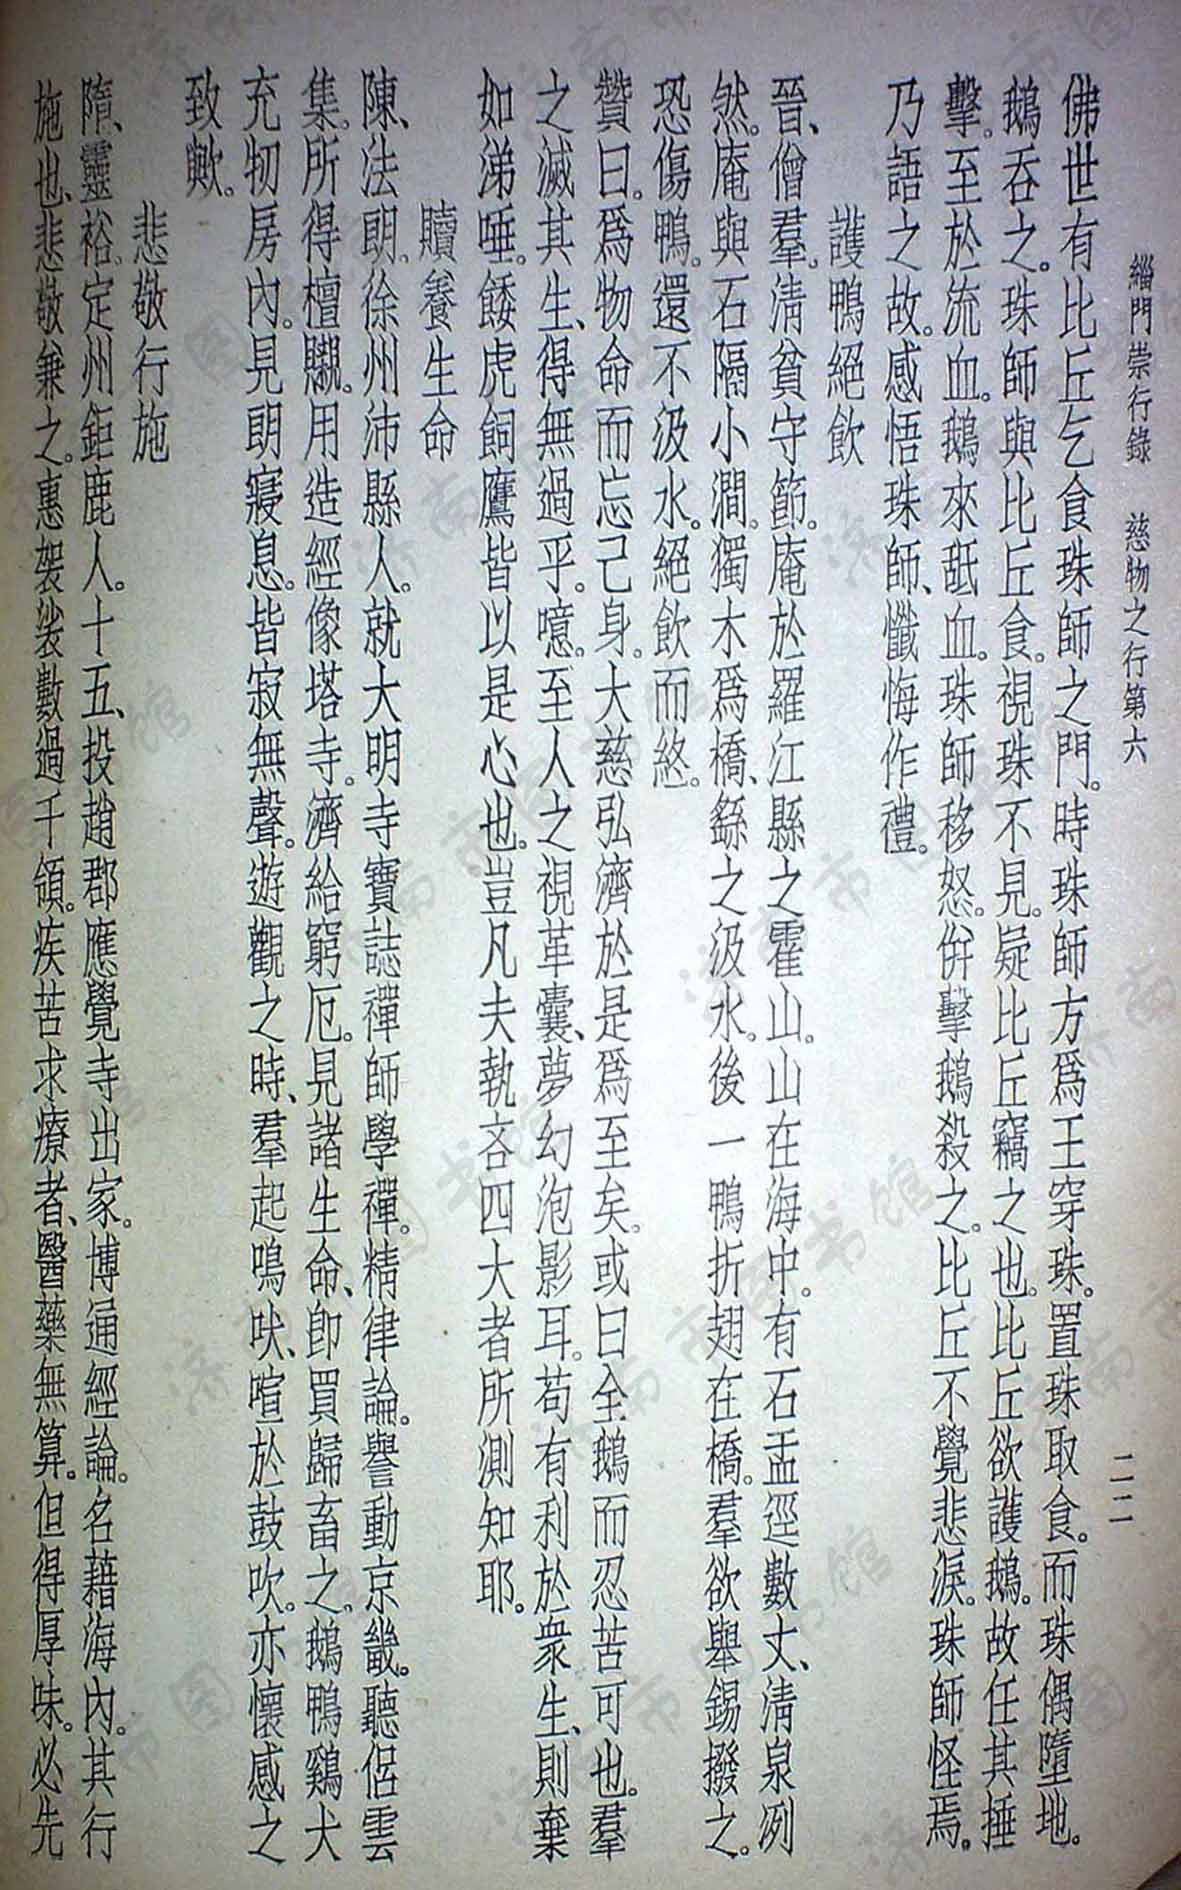 緇門崇行錄　慈物之行第六　二二
佛世有比丘乞食珠師之門。時珠師方爲王穿珠。置珠取食。而珠偶墮地。
鵝吞之。珠師與比丘食。視珠不見。疑比丘竊之也。比丘欲護鵝。故任其捶
擊。至於流血。鵝來舐血。珠師移怒。併擊鵝殺之。比丘不覺悲淚。珠師怪焉。
乃語之故。感悟珠師、懺悔作禮。
護鴨絕飲
晉、僧羣。淸貧守節。庵於羅江縣之霍山。山在海中。有石盂逕數丈、淸泉冽
然。庵與石隔小澗。獨木爲橋、繇之汲水。後一鴨折翅在橋。羣欲舉錫撥之、
恐傷鴨。還不汲水。絕飲而終。
贊曰。爲物命而忘己身。大慈弘濟於是爲至矣。或曰全鵝而忍苦可也。羣
之滅其生、得無過乎。噫。至人之視革囊、夢幻泡影耳。苟有利於衆生、則棄
如涕唾。餧虎飼鷹皆以是心也。豈凡夫執吝四大者所測知耶。
贖養生命
陳、法朗。徐州沛縣人。就大明寺寶誌禪師學禪。精律論。譽動京畿。聽侶雲
集。所得檀嚫。用造經像塔寺。濟給窮厄。見諸生命、卽買歸畜之。鵝鴨鷄犬
充牣房內。見朗寢息。皆寂無聲。遊觀之時、羣起鳴吠、喧於鼓吹。亦懷感之
致歟。
悲敬行施
隋、靈裕。定州鉅鹿人。十五、投趙郡應覺寺出家。博通經論。名藉海內。其行
施也、悲敬兼之。惠袈裟數過千領。疾苦求療者、醫藥無算。但得厚味。必先